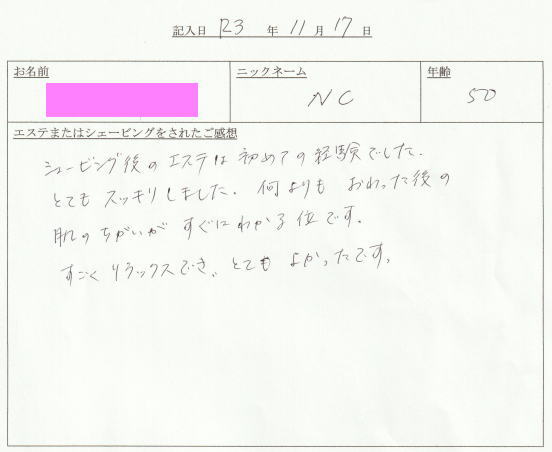 記入日 R3 年 11 月 17 日
お名前 ニックネーム 年齢
NC 50
エステまたはシェービングをされたご感想
シェービング後のエステは初めての経験でした.
とてもスッキリしました. 何よりも おわった後の
肌のちがいが すぐにわかる位です.
すごく リラックスでき、とても よかったです。